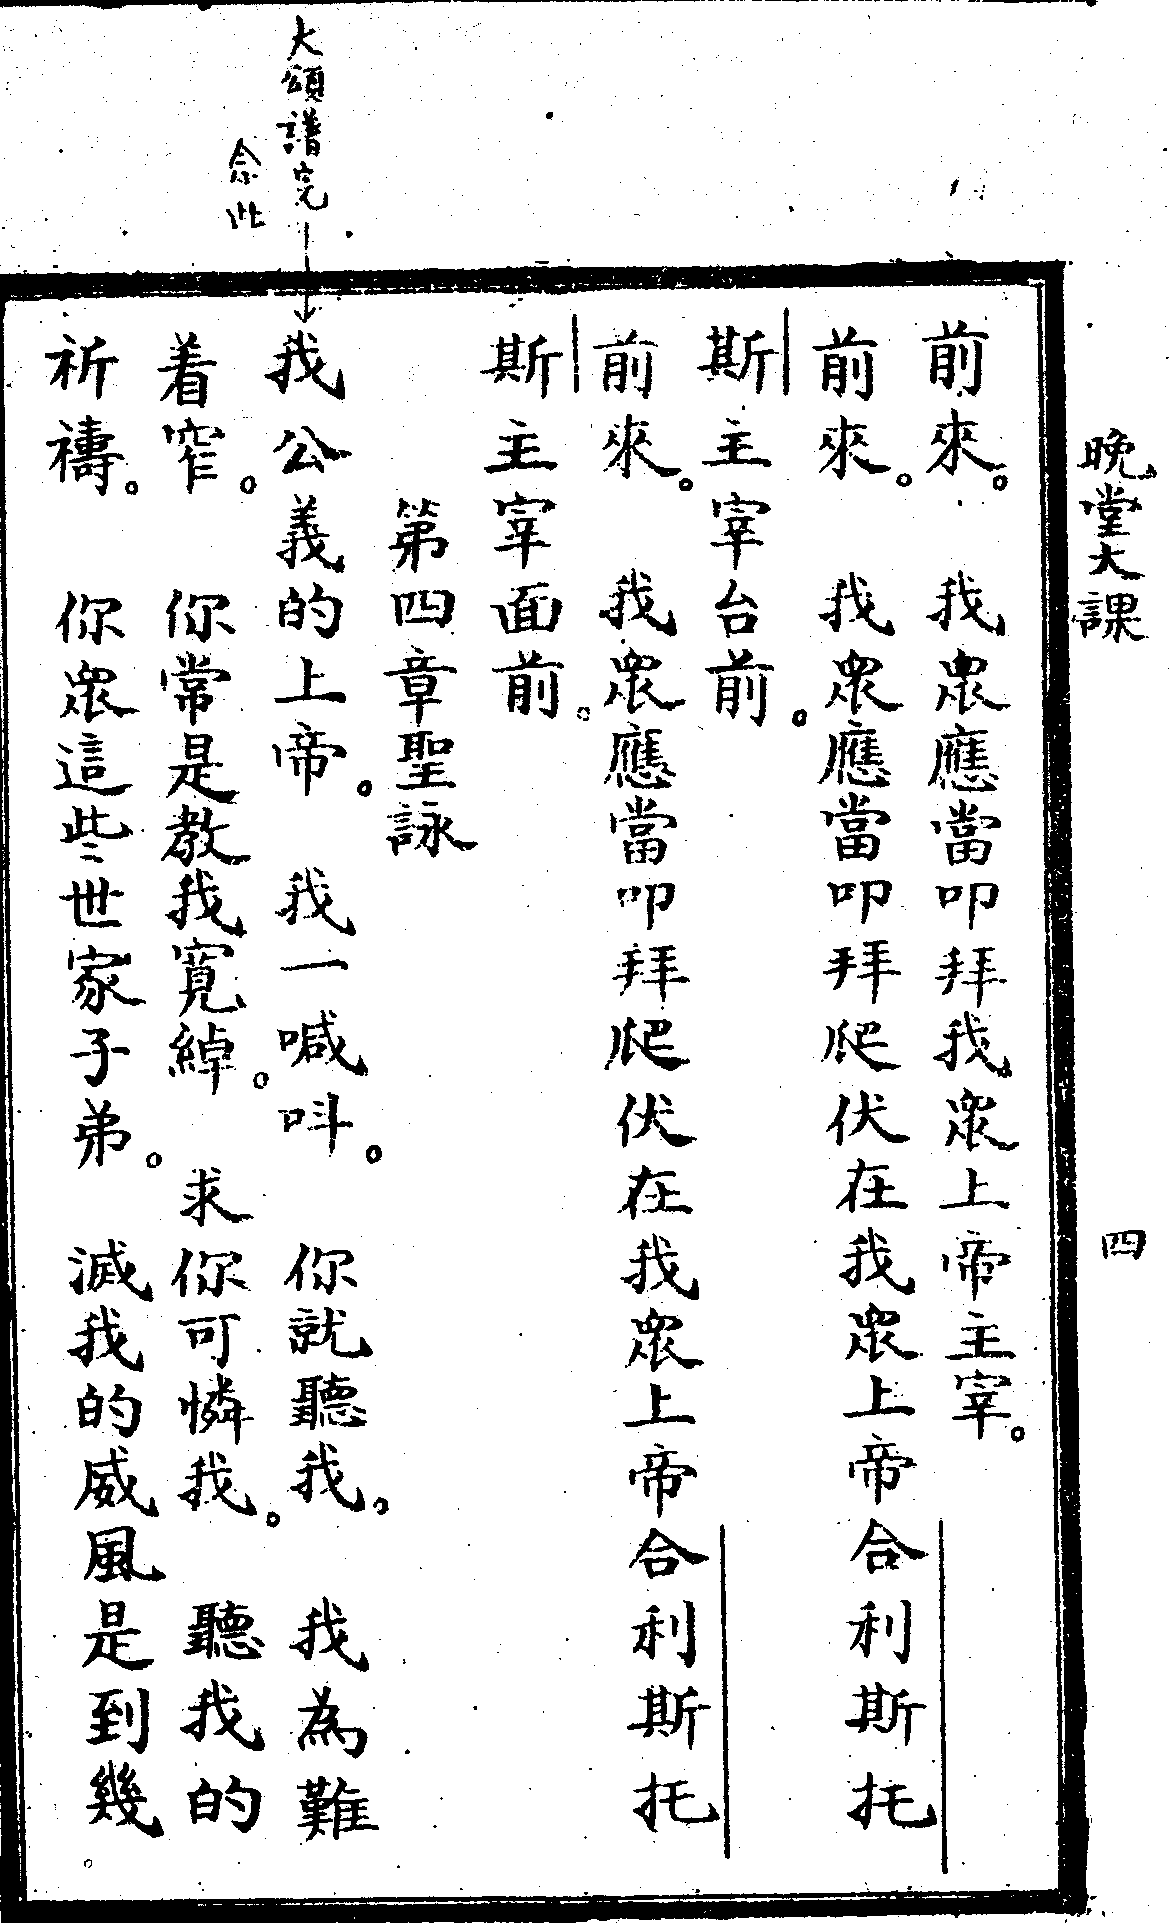 晚堂大課
四
前來。我衆應當叩拜我衆上帝主宰。
前來。我衆應當叩拜爬伏在我衆上帝合利斯托
斯主宰台前。
前來。我衆應當叩拜爬伏在我衆上帝合利斯托
斯主宰面前。
第四章聖詠
大頌譜完
念此
我公義的上帝。我一喊呌。你就聽我。我為難
着窄。你常是教我寬綽。求你可憐我。聽我的
祈禱。你衆這些世家子弟。滅我的威風是到幾